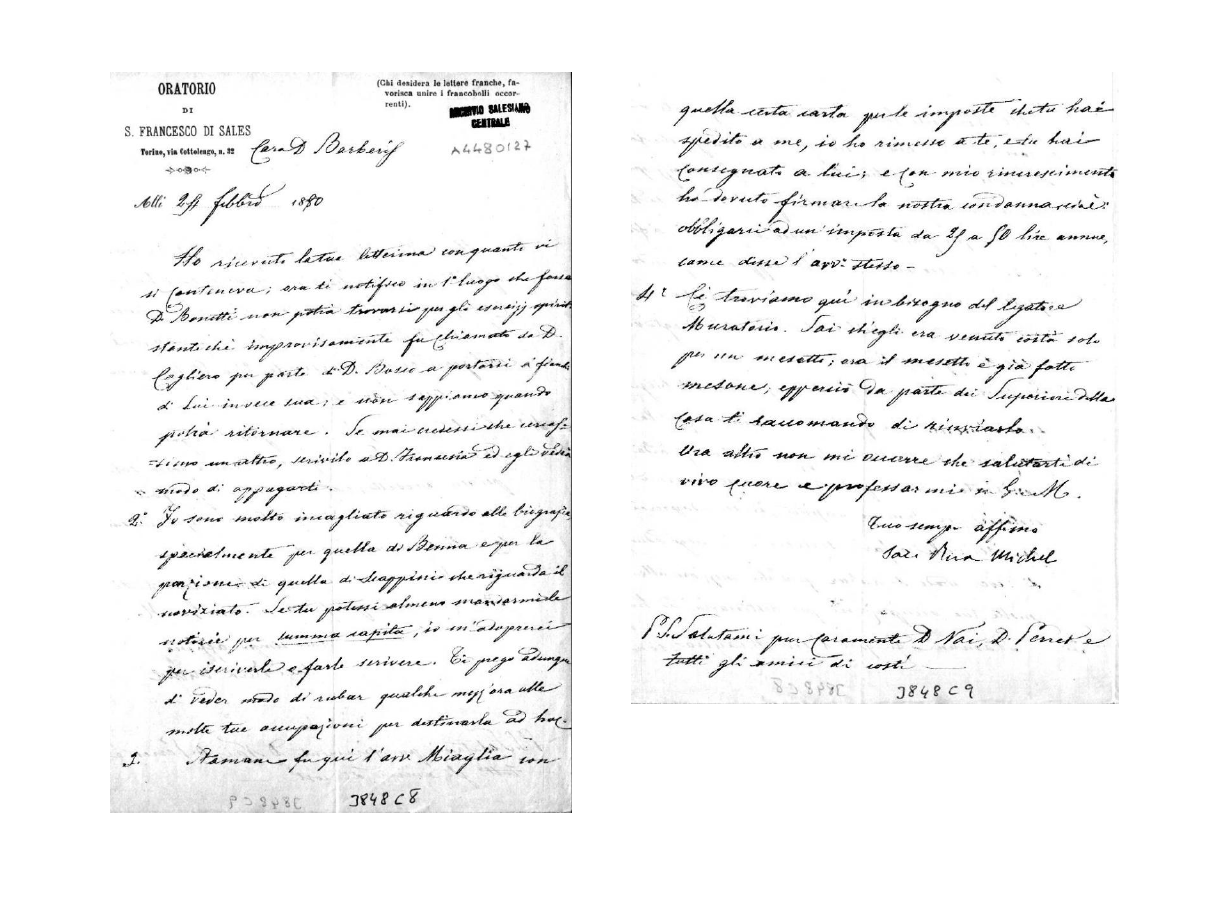 ORATORIO
DI
S. FRANCESCO DI SALES
Torino, via Cottolengo, n. 32
(Chi desidera le lettere franche, fa-
vorisca unire i francobolli occor-
renti).
ARCHIVIO SALESIANO
CENTRALE
A4480127
Caro D Barberis
Alli febbro 1880
Ho ricevuto la tua letterina con quanto vi
si conteneva; ora ti notifico in 1° luogo che forse
D. Bonetti non potrà trovarsi per gli esercizj spiri
stante chè improvisamente fu chiamato da D.
Cagliero per parte di D. Bosco a portarsi a fianco
di Lui in vece sua; e non sappiamo quando
potrà ritornare. Se mai credessi che cercas-
simo un altro, scrivilo a D. Francesia ed egli vedrà
modo di appagarti.
2° Io sono molto incagliato riguardo alle biografie
specialmente per quella di Benna e per la
porzione di quella di Scappini che riguarda il
noviziato. Se tu potessi almeno mandarmi le
notizie per summa capita, io m'adoprerei
per iscriverle e farle scrivere. Ti prego adunque
di veder modo di rubar qualche mezz'ora alle
molte tue occupazioni per destinarla ad hoc.
3. Stamane fu qui l'avv Miaglia con
J848C8
quella certa carta per le imposte che tu hai
spedito a me, io ho rimesso a te, e tu hai
consegnato a lui; e con mio rincrescimento
ho dovuto firmare la nostra condanna cioè:
obbligarci ad un' imposta da 25 a 50 lire annue,
come disse l'avv° stesso -
4° Ci troviamo qui in bisogno del legatore
Muratorio. Sai ch'egli era venuto costà solo
per un mesetto; ora il mesetto è già fatto
mesone; epperciò da parte dei Superiori della
Casa ti raccomando di rinviarlo.
Ora altro non mi occorre che salutarti di
vivo cuore e professarmi in G. e M.
Tuo sempre affimo
Sac. Rua Michel
P.S. Salutami pur caramente D. Nai, D. Perret e
tutti gli amici di costì
J848C9